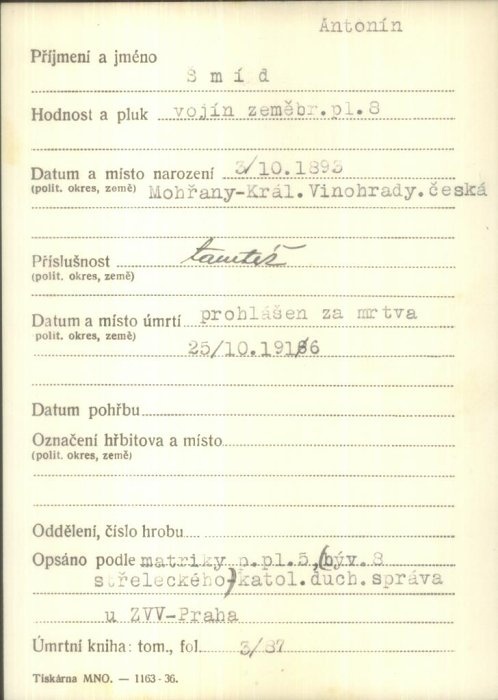 Antonín
Příjmení a jméno
Šmíd
Hodnost a pluk vojín zeměbr.pl.8
Datum a místo narození 3/10.1893
(polit. okres, země) Mohřany-Král.Vinohrady.česká
Příslušnost tamtéž
(polit. okres, země)
Datum a místo úmrtí prohlášen za mrtva
polit. okres, země) 25/10.1916
Datum pohřbu
Označení hřbitova a místo
(polit. okres, země)
Oddělení, číslo hrobu
Opsáno podle matriky p.pl.5,(býv.8
střeleckého)katol.duch.správa
u ZVV-Praha
Úmrtní kniha: tom., fol. 3/87
Tiskárna MNO. — 1163-36.